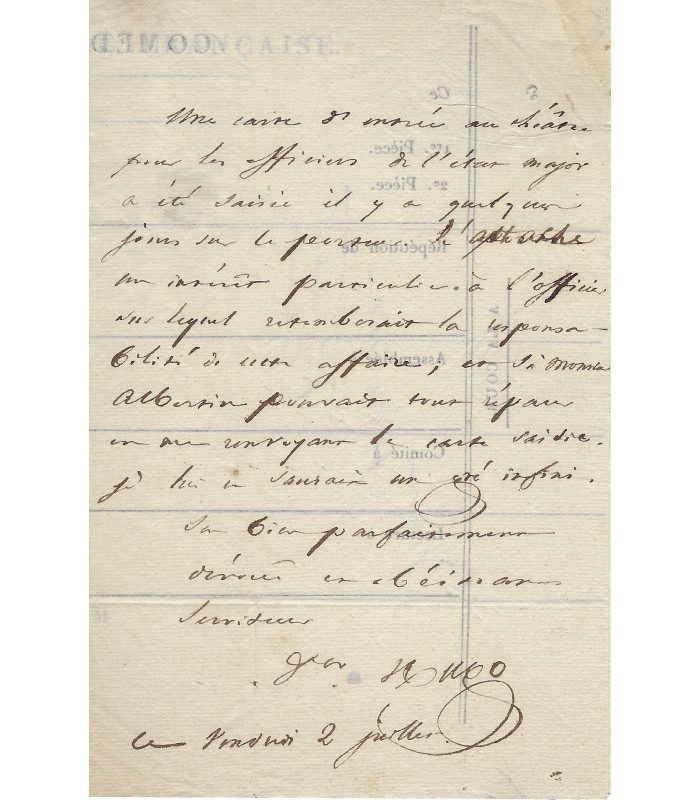 COMED FRANÇAISE.
Ce
Une carte d'entrée au théâtre
1re. Pièce.
pour les officiers de l'état major
2e. Pièce.
a été saisie il y a quelques
jours sur le porteur. J'attache
Répétition de
un intérêt particulier à l'officier
sur lequel retomberait la responsa-
bilité de cette affaire, et si Monsieur
Assemblée
Albertin pouvait tout réparer
en me renvoyant la carte saisie.
Comité à
je lui en saurais un gré infini.
Son bien parfaitement
dévoué et obéissant
Serviteur
Hugo
ce Vendredi 2 juillet.